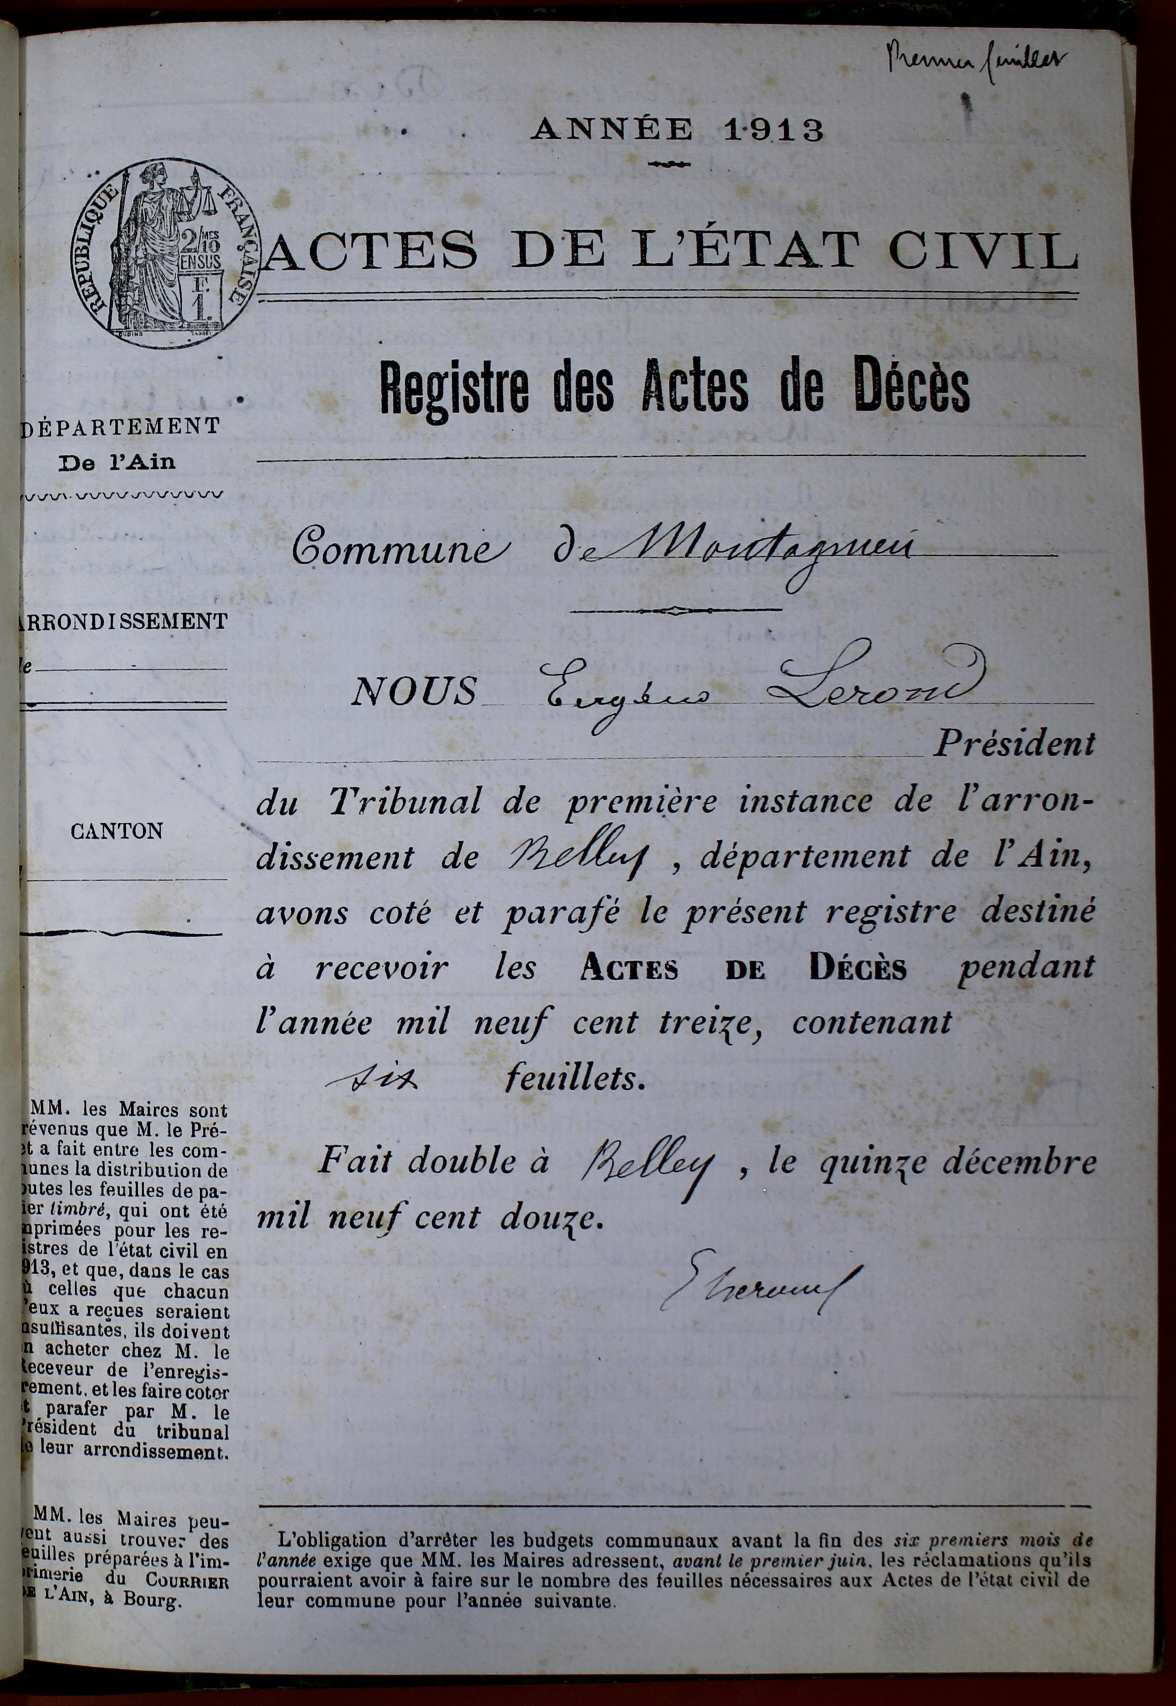 Premier feuillet
1
ANNÉE 1913
RÉPUBLIQUE FRANÇAISE
2/MES
10
EN SUS
F.
1.
ACTES DE L'ÉTAT CIVIL
Registre des Actes de Décès
DÉPARTEMENT
De l'Ain
Commune de Montagnieu
RRONDISSEMENT
e
NOUS Eugène Lerond
Président
du Tribunal de première instance de l'arron-
CANTON
dissement de Belley, département de l'Ain,
avons coté et parafé le présent registre destiné
à recevoir les ACTES DE DÉCÈS pendant
l'année mil neuf cent treize, contenant
six feuillets.
Fait double à Belley, le quinze décembre
mil neuf cent douze.
MM. les Maires sont
révenus que M. le Pré-
et a fait entre les com-
unes la distribution de
outes les feuilles de pa-
ier timbré, qui ont été
mprimées pour les re-
istres de l'état civil en
913, et que, dans le cas
ù celles que chacun
'eux a reçues seraient
nsuffisantes, ils doivent
n acheter chez M. le
Receveur de l'enregis-
rement, et les faire coter
t parafer par M. le
Président du tribunal
e leur arrondissement.
MM. les Maires peu-
vent aussi trouver des
euilles préparées à l'im-
primerie du COURRIER
DE L'AIN, à Bourg.
L'obligation d'arrêter les budgets communaux avant la fin des six premiers mois de
l'année exige que MM. les Maires adressent, avant le premier juin, les réclamations qu'ils
pourraient avoir à faire sur le nombre des feuilles nécessaires aux Actes de l'état civil de
leur commune pour l'année suivante.